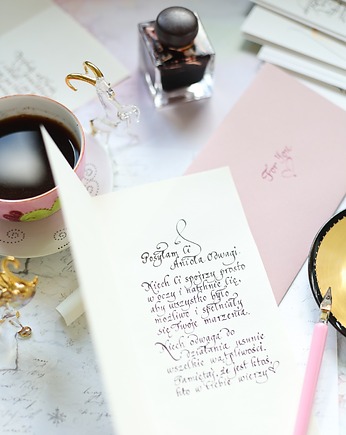 Posyłam Ci
Anioła Odwagi.
Niech Ci spojrzy prosto
w oczy i natchnie Cię,
aby wszystko było
możliwe i spełniały
się Twoje marzenia.
Niech odwaga do
działania usunie
wszelkie wątpliwości.
Pamiętaj, że jest ktoś,
kto w Ciebie wierzy
For You